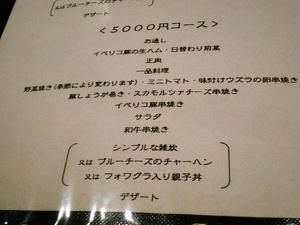 又はブルーチーズのチャーハン
デザート
＜5000円コース＞
お通し
イベリコ豚の生ハム・日替わり前菜
正肉
一品料理
野菜焼き(季節により変わります)・ミニトマト・味付けウズラの卵串焼き
豚しょうが巻き・スカモルツァチーズ串焼き
イベリコ豚串焼き
サラダ
和牛串焼き
シンプルな雑炊
又は ブルーチーズのチャーハン
又は フォワグラ入り親子丼
デザート